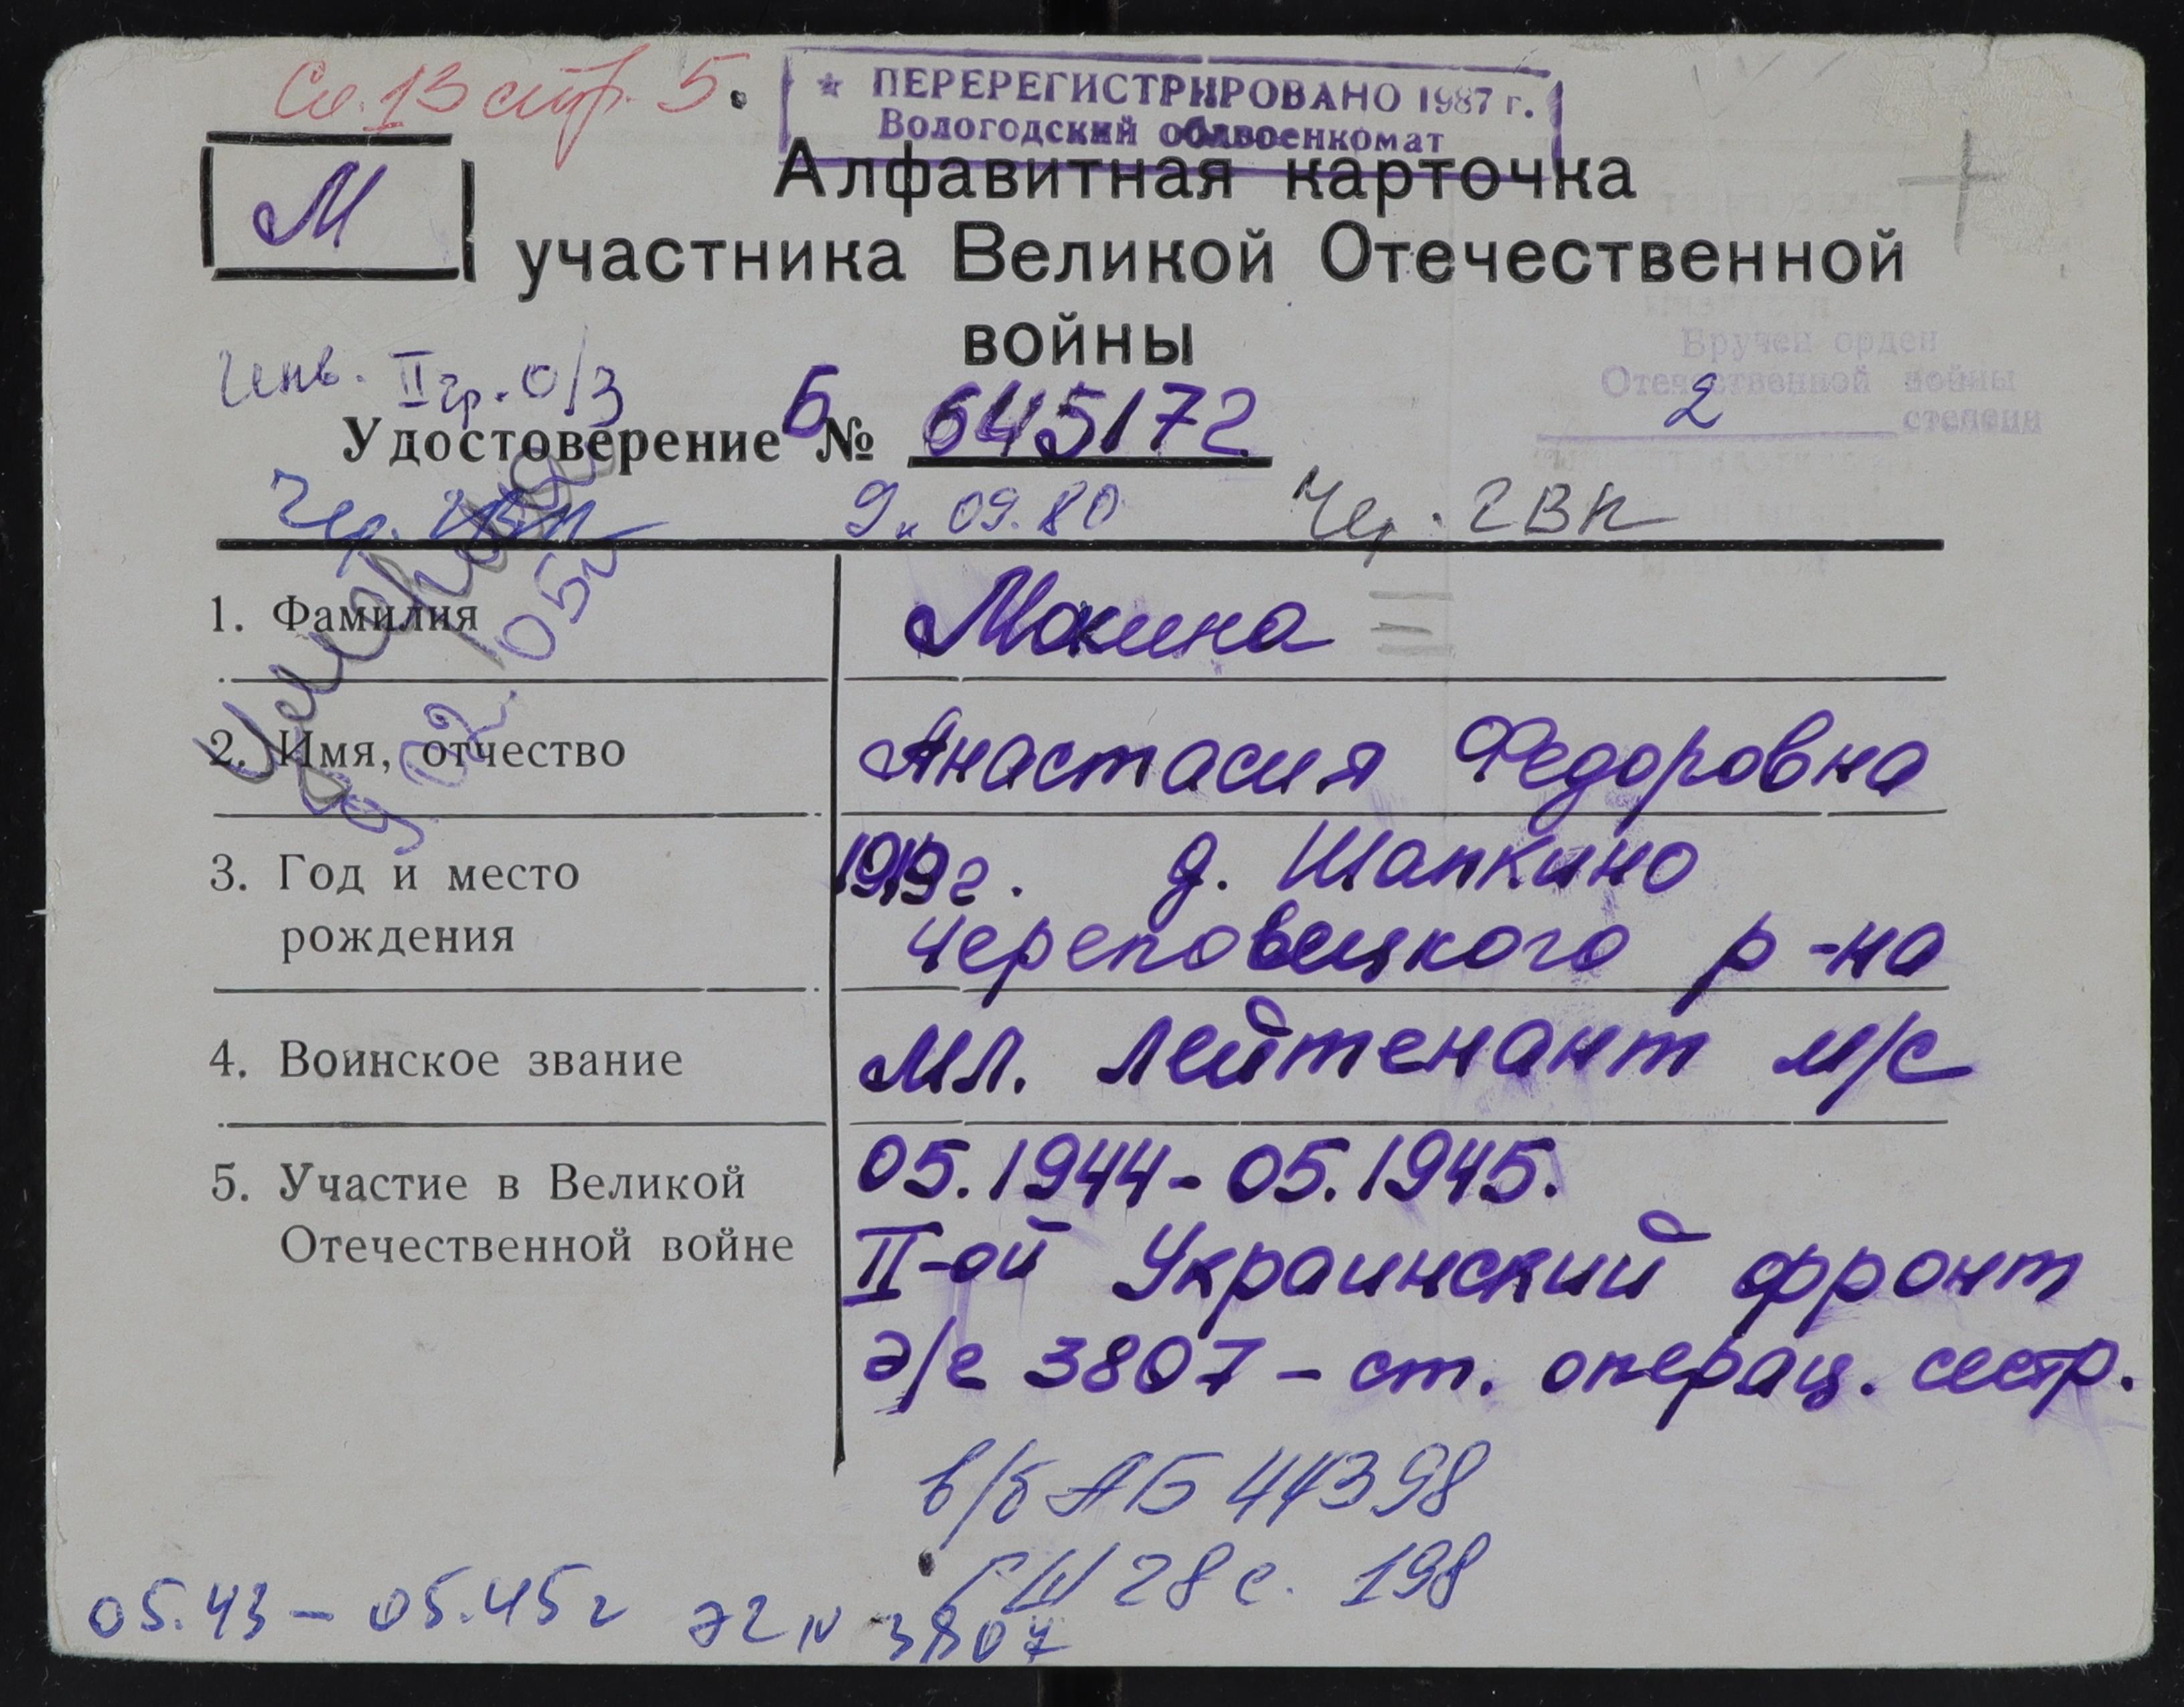 Сп. 13 стр. 5.
★ ПЕРЕРЕГИСТРИРОВАНО 1987 г.
Вологодский облвоенкомат
М
Алфавитная карточка
участника Великой Отечественной
войны
Инв. II гр. о/з
Вручен орден
Отечественной войны
2 степени
Удостоверение Б № 645172
9. 09. 80
Чер. ГВК
Умерла
9.02.05г
1. Фамилия
Мокина
2. Имя, отчество
Анастасия Федоровна
3. Год и место рождения
1919г. д. Шапкино
Череповецкого р-на
4. Воинское звание
мл. лейтенант м/с
5. Участие в Великой Отечественной войне
05.1944 - 05.1945.
II-ой Украинский фронт
э/г 3807 - ст. операц. сестр.
в/б АБ 44398
28 с. 198
05.43 - 05.45г эг N 3807